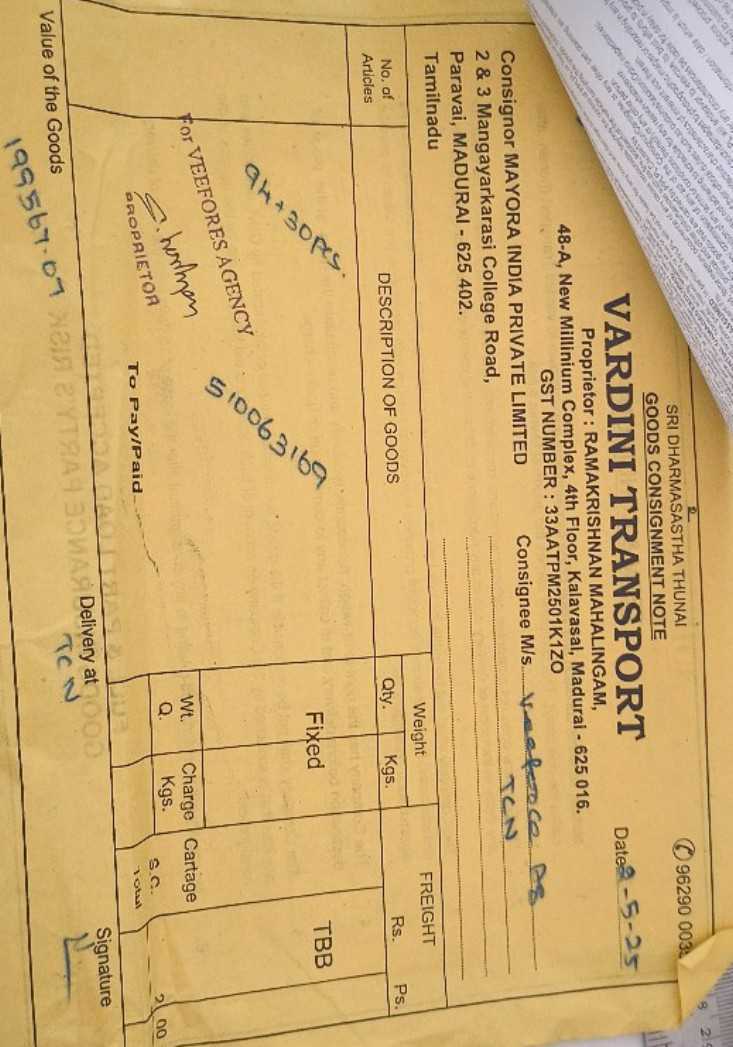 SRI DHARMASASTHA THUNAI
GOODS CONSIGNMENT NOTE
✆ 96290 003
VARDINI TRANSPORT
Proprietor : RAMAKRISHNAN MAHALINGAM,
48-A, New Millinium Complex, 4th Floor, Kalavasal, Madurai - 625 016.
GST NUMBER : 33AATPM2501K1ZO
Date 8-5-25
Consignor MAYORA INDIA PRIVATE LIMITED
2 & 3 Mangayarkarasi College Road,
Paravai, MADURAI - 625 402.
Tamilnadu
Consignee M/s
TCN
No. of Articles
DESCRIPTION OF GOODS
Weight
Qty.
Kgs.
FREIGHT
Rs.
Ps.
94+30Pcs.
510063169
Fixed
TBB
For VEEFORES AGENCY
PROPRIETOR
To Pay/Paid
Wt.
Q.
Charge
Kgs.
Cartage
S.C.
Total
2 00
Value of the Goods
199567.09
Delivery at
TCN
Signature